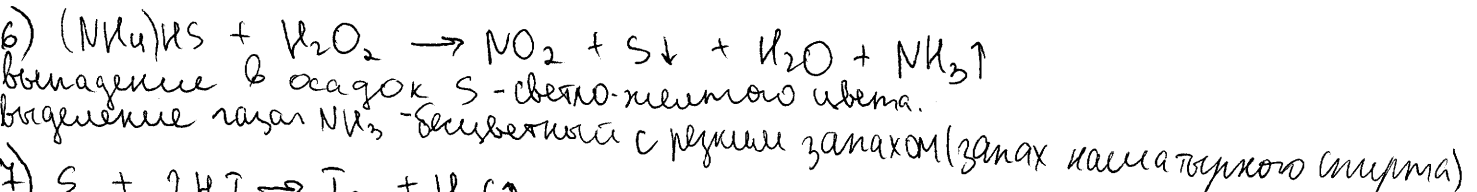 6) (NH₄)HS + H₂O₂ → NO₂ + S↓ + H₂O + NH₃↑
выпадение в осадок S - светло-желтого цвета.
выделение газа NH₃ - бесцветный с резким запахом (запах нашатырного спирта)
7) S + 2HI → I₂ + H₂S↑